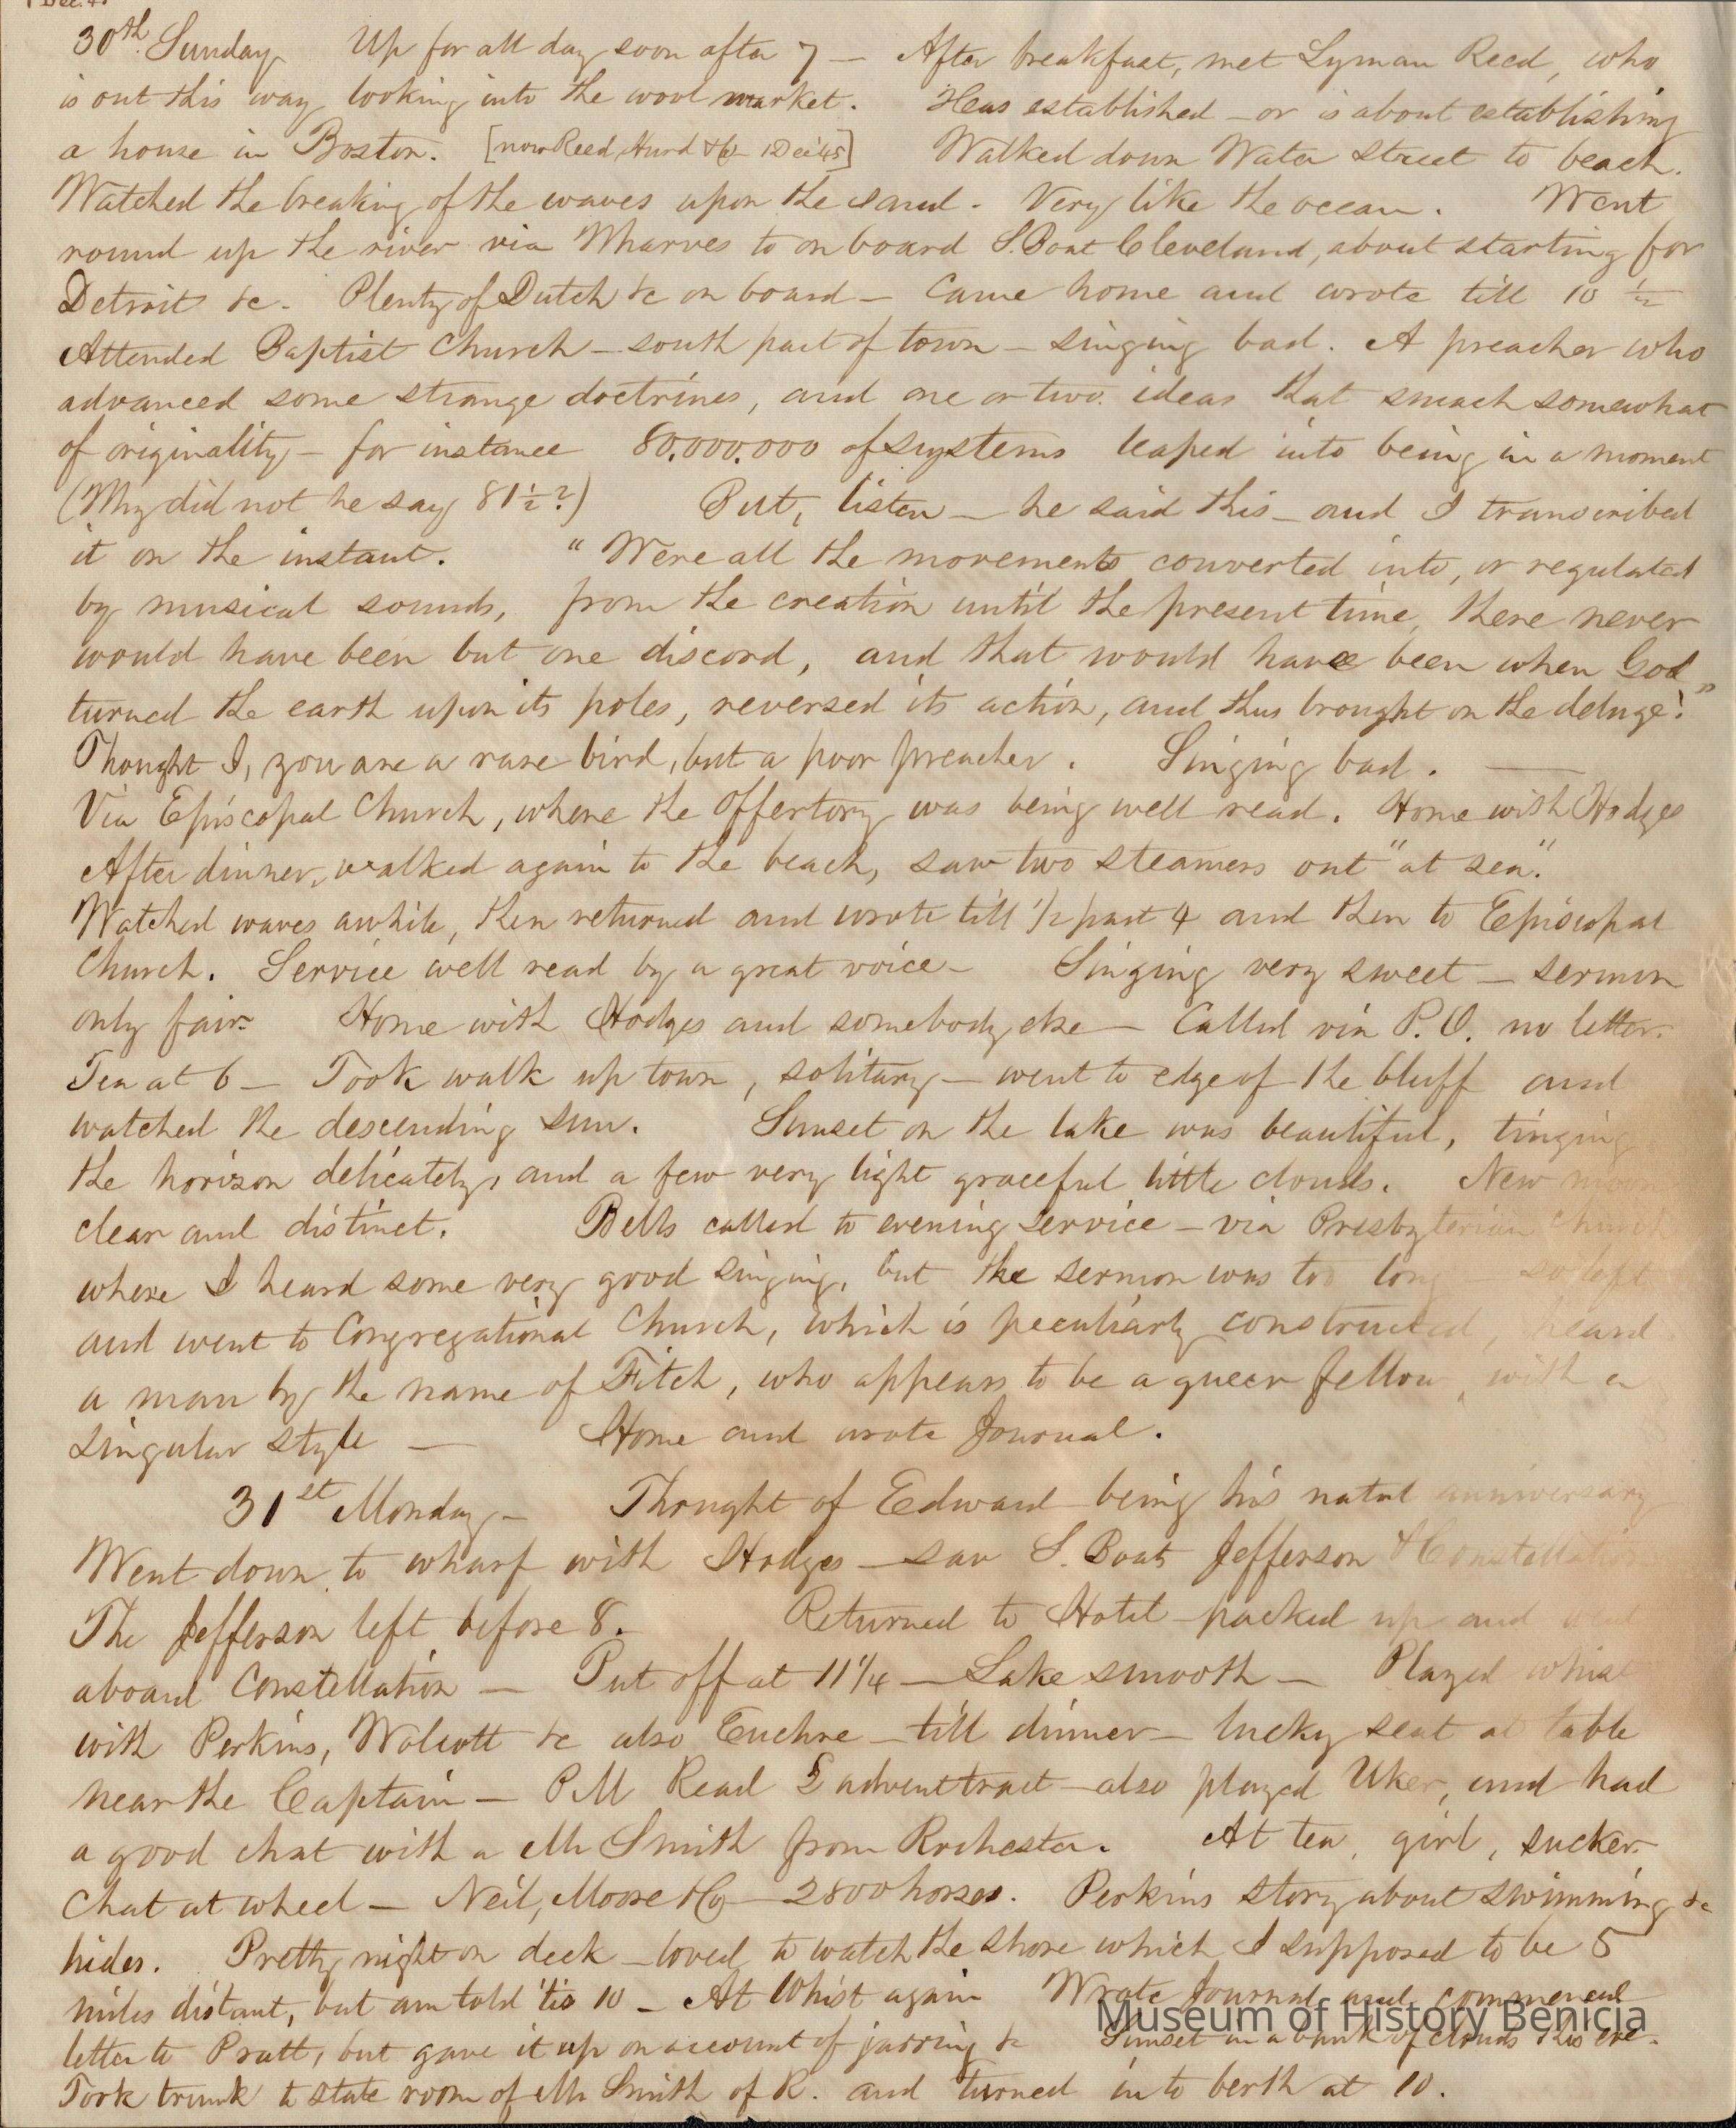 Dec. 4
30th. Sunday Up for all day soon after 7 — After breakfast, met Lyman Reed, who
is out this way looking into the wool market. Has established — or is about establishing
a house in Boston. [now Reed, Hurd & Co 1 Dec '45] Walked down Water street to beach.
Watched the breaking of the waves upon the sand. Very like the ocean. Went
round up the river via Wharves to on board S. Boat Cleveland, about starting for
Detroit &c. Plenty of Dutch &c on board — Came home and wrote till 10 1/2
Attended Baptist Church — south part of town — singing bad. A preacher who
advanced some strange doctrines, and one or two ideas that smack somewhat
of originality — for instance 80.000.000 of systems leaped into being in a moment
(Why did not he say 81 1/2?) But, listen — he said this — and I transcribed
it on the instant. "Were all the movements converted into, or regulated
by musical sounds, from the creation until the present time, there never
would have been but one discord, and that would have been when God
turned the earth upon its poles, reversed its action, and thus brought on the deluge!"
Thought I, you are a rare bird, but a poor preacher. Singing bad. —
Via Episcopal Church, where the offertory was being well read. Home with Hodges
After dinner, walked again to the beach, saw two steamers out "at sea".
Watched waves awhile, then returned and wrote till 1/2 past 4 and then to Episcopal
Church. Service well read by a great voice — Singing very sweet — sermon
only fair. Home with Hodges and somebody else — Called via P.O. no letter.
Tea at 6 — Took walk up town, solitary — went to edge of the bluff and
watched the descending sun. Sunset on the lake was beautiful, tinging
the horison delicately, and a few very light graceful little clouds. New moon
clear and distinct. Bells called to evening service — via Presbyterian Church
where I heard some very good singing, but the sermon was too long so left
and went to Congregational Church, which is peculiarly constructed, heard
a man by the name of Fitch, who appears to be a queer fellow, with a
singular style — Home and wrote Journal.
31st Monday — Thought of Edward being his natal anniversary
Went down to wharf with Hodges — saw S. Boats Jefferson & Constellation
The Jefferson left before 8. Returned to Hotel packed up and went
aboard Constellation — Put off at 11 1/4 — Lake smooth — Played whist
with Perkins, Wolcott &c also Euchre — till dinner — lucky seat at table
near the Captain — P.M Read 2 advent tract — also played Uker, and had
a good chat with a Mr Smith from Rochester. At tea, girl, sucker.
Chat at wheel — Neil, Moore & Co 2800 horses. Perkins story about swimming &c
hides. Pretty night on deck — loved to watch the shore which I supposed to be 5
miles distant, but am told 'tis 10 — At Whist again Wrote Journal and commenced
letter to Pratt, but gave it up on account of jarring &c Sunset in a bank of clouds this eve.
Took trunk to state room of Mr Smith of R. and turned into berth at 10.
Museum of History Benicia